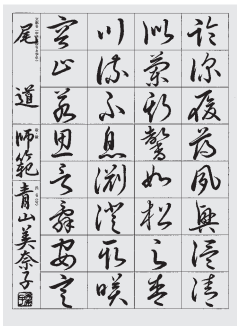 臨深履薄夙興温清
似蘭斯馨如松之盛
川流不息淵澄取映
容止若思言辞安定
尾道 師範 青山美奈子